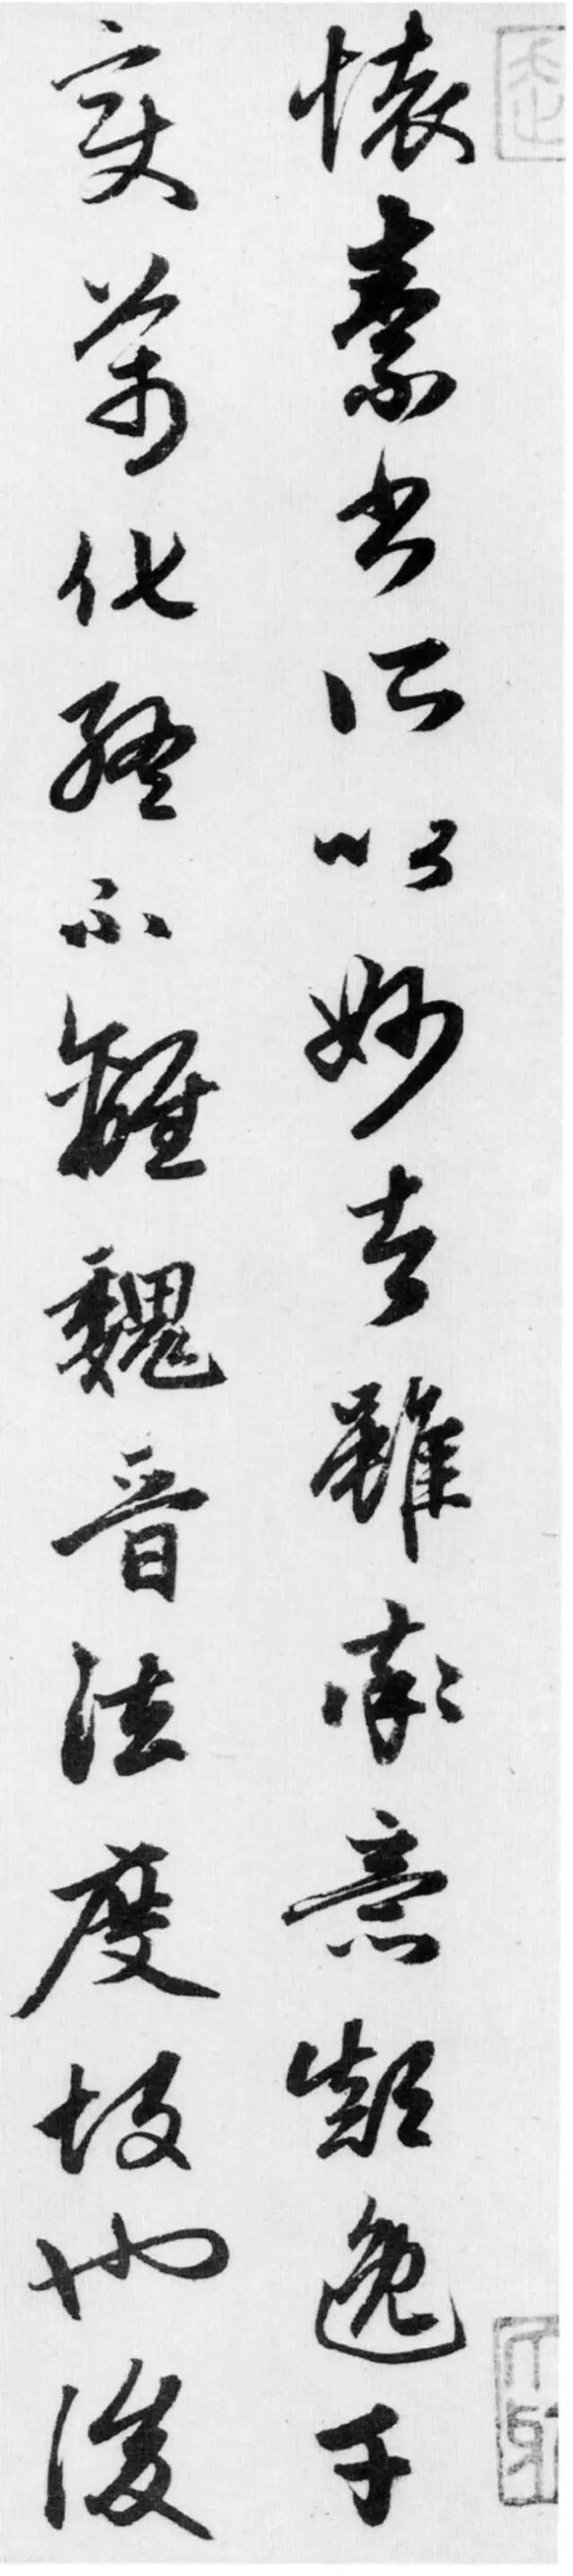 懐素书所以妙者雖率意顛逸千
变萬化終不離魏晋法度故也後